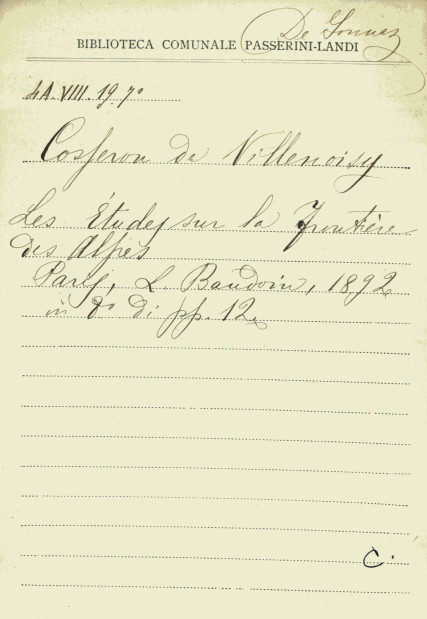 De Gonnez
BIBLIOTECA COMUNALE PASSERINI-LANDI
4A.VIII.19.7º
Cosseron de Villenoisy
Les Études sur la Frontière
des Alpes
Paris, L. Baudoin, 1892
in 8º di pp. 12.
C.